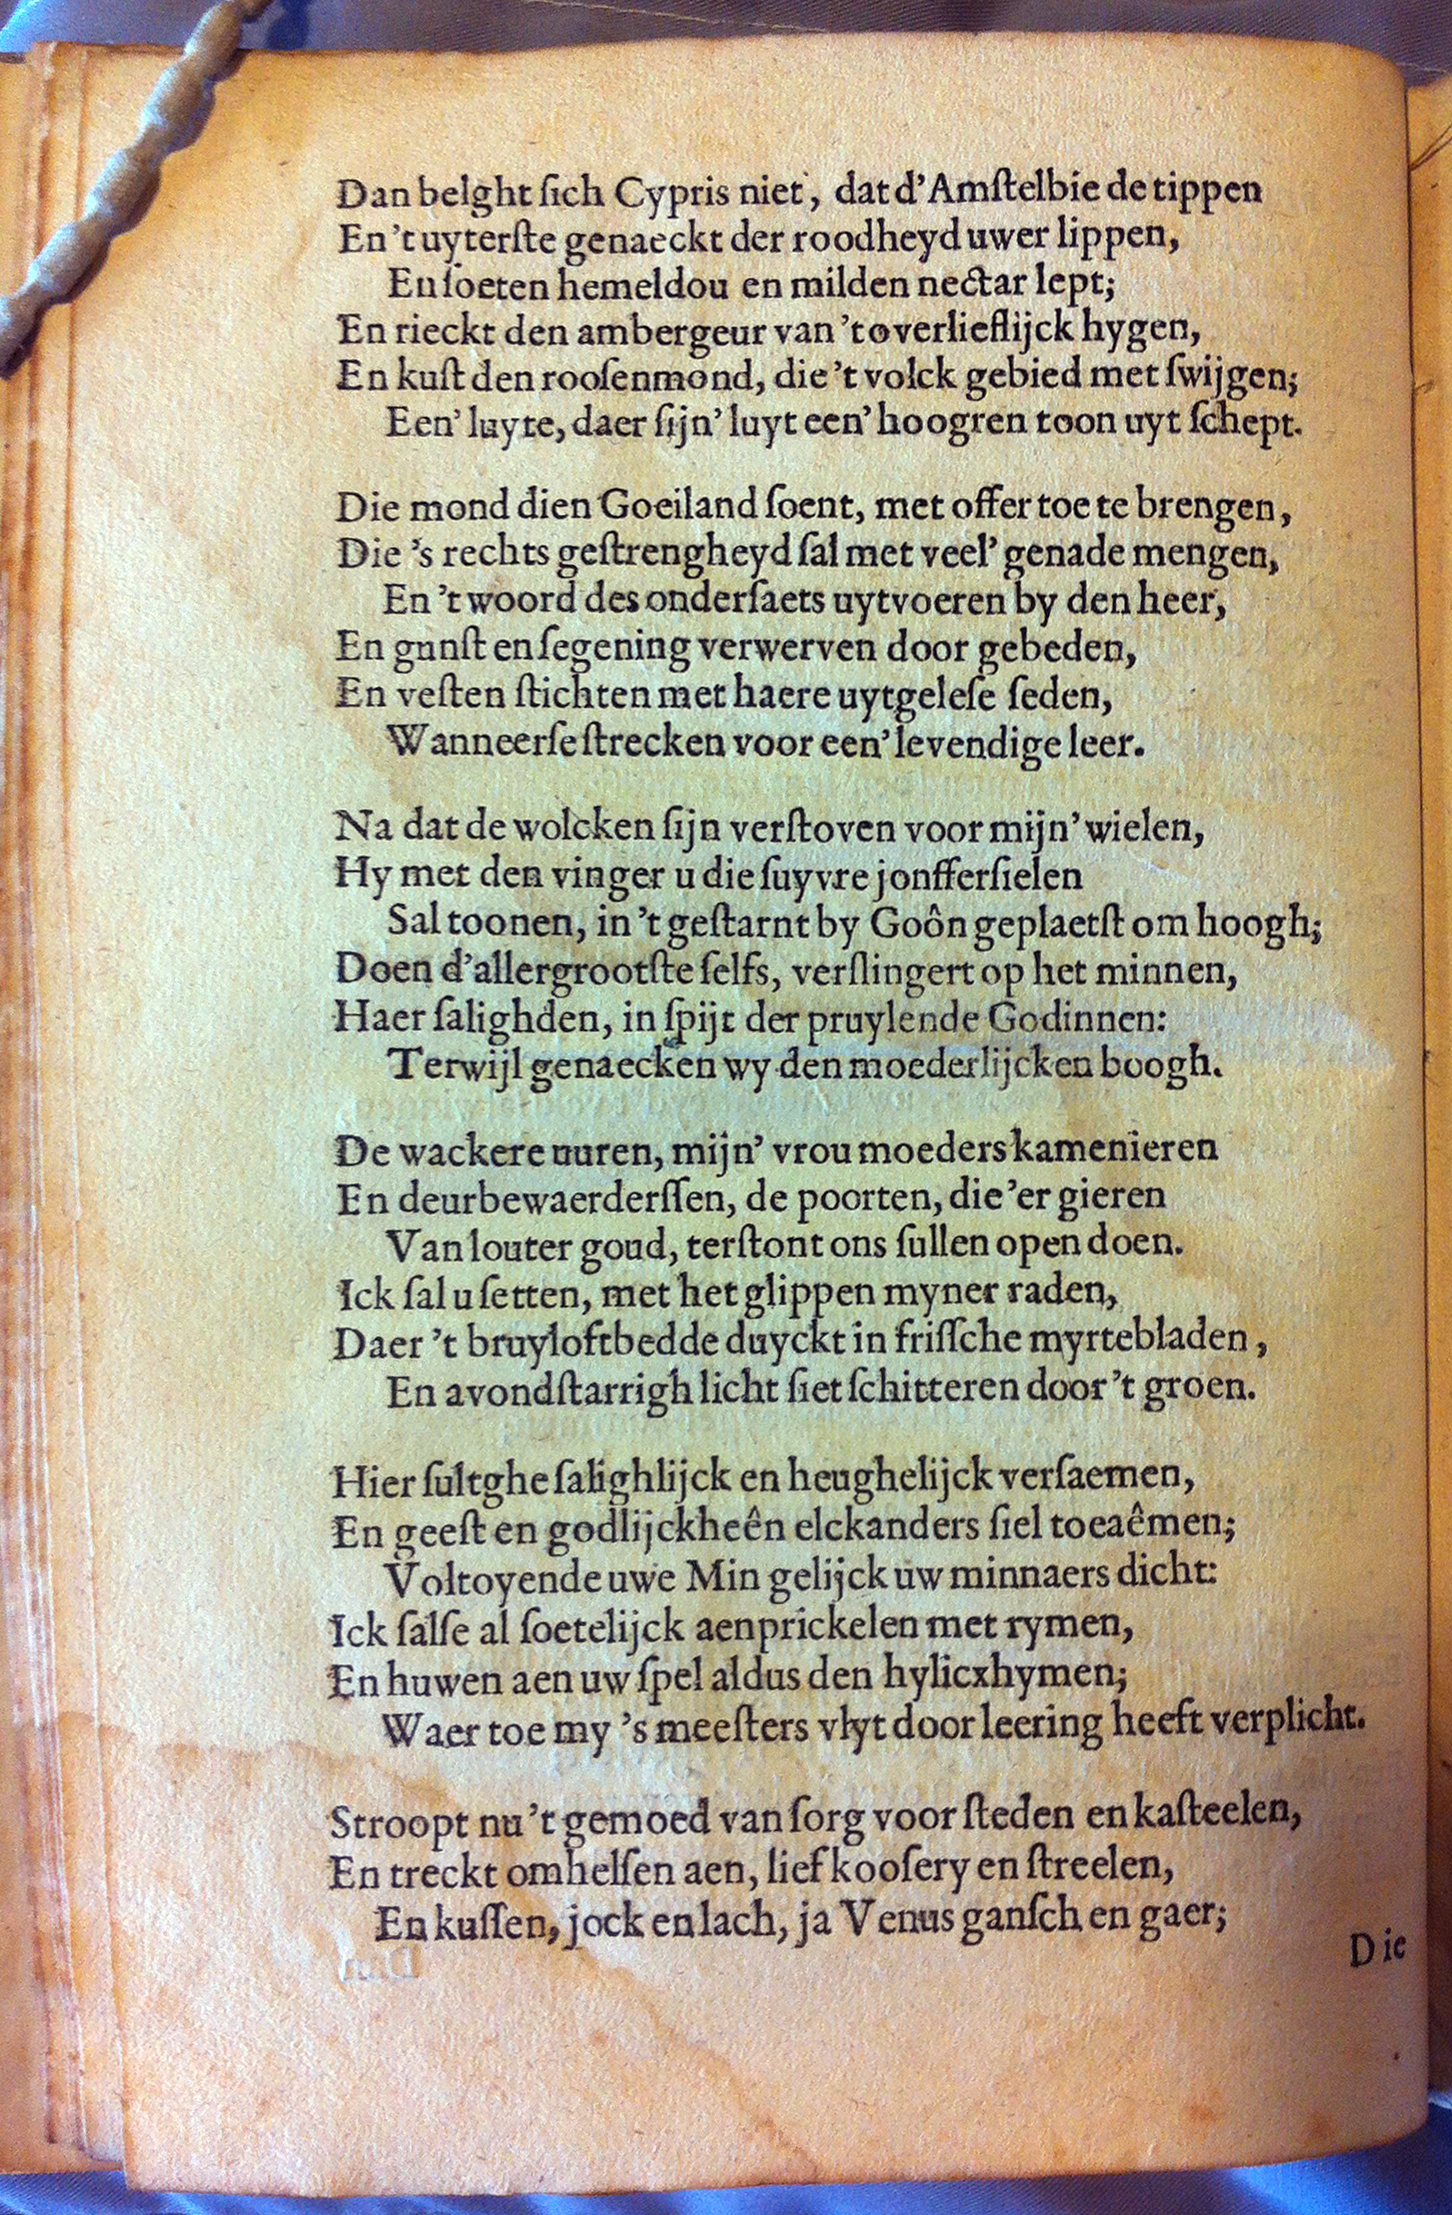 Dan belght ſich Cypris niet, dat d'Amſtelbie de tippen
En 't uyterſte genaeckt der roodheyd uwer lippen,
En ſoeten hemeldou en milden nectar lept;
En rieckt den ambergeur van 't overlieflijck hygen,
En kuſt den rooſenmond, die 't volck gebied met ſwijgen;
Een' luyte, daer ſijn' luyt een' hoogren toon uyt ſchept.
Die mond dien Goeiland ſoent, met offer toe te brengen,
Die 's rechts geſtrengheyd ſal met veel' genade mengen,
En 't woord des onderſaets uytvoeren by den heer,
En gunſt en ſegening verwerven door gebeden,
En veſten ſtichten met haere uytgeleſe ſeden,
Wanneerſe ſtrecken voor een' levendige leer.
Na dat de wolcken ſijn verſtoven voor mijn' wielen,
Hy met den vinger u die ſuyvre jonfferſielen
Sal toonen, in 't geſtarnt by Goôn geplaetſt om hoogh;
Doen d'allergrootſte ſelfs, verſlingert op het minnen,
Haer ſalighden, in ſpijt der pruylende Godinnen:
Terwijl genaecken wy den moederlijcken boogh.
De wackere uuren, mijn' vrou moeders kamenieren
En deurbewaerderſſen, de poorten, die 'er gieren
Van louter goud, terſtont ons ſullen open doen.
Ick ſal u ſetten, met het glippen myner raden,
Daer 't bruyloftbedde duyckt in friſſche myrtebladen,
En avondſtarrigh licht ſiet ſchitteren door 't groen.
Hier ſultghe ſalighlijck en heughelijck verſaemen,
En geeſt en godlijckheên elckanders ſiel toeaêmen;
Voltoyende uwe Min gelijck uw minnaers dicht:
Ick ſalſe al ſoetelijck aenprickelen met rymen,
En huwen aen uw ſpel aldus den hylicxhymen;
Waer toe my 's meeſters vlyt door leering heeft verplicht.
Stroopt nu 't gemoed van ſorg voor ſteden en kaſteelen,
En treckt omhelſen aen, lief kooſery en ſtreelen,
En kuſſen, jock en lach, ja Venus ganſch en gaer;
Die